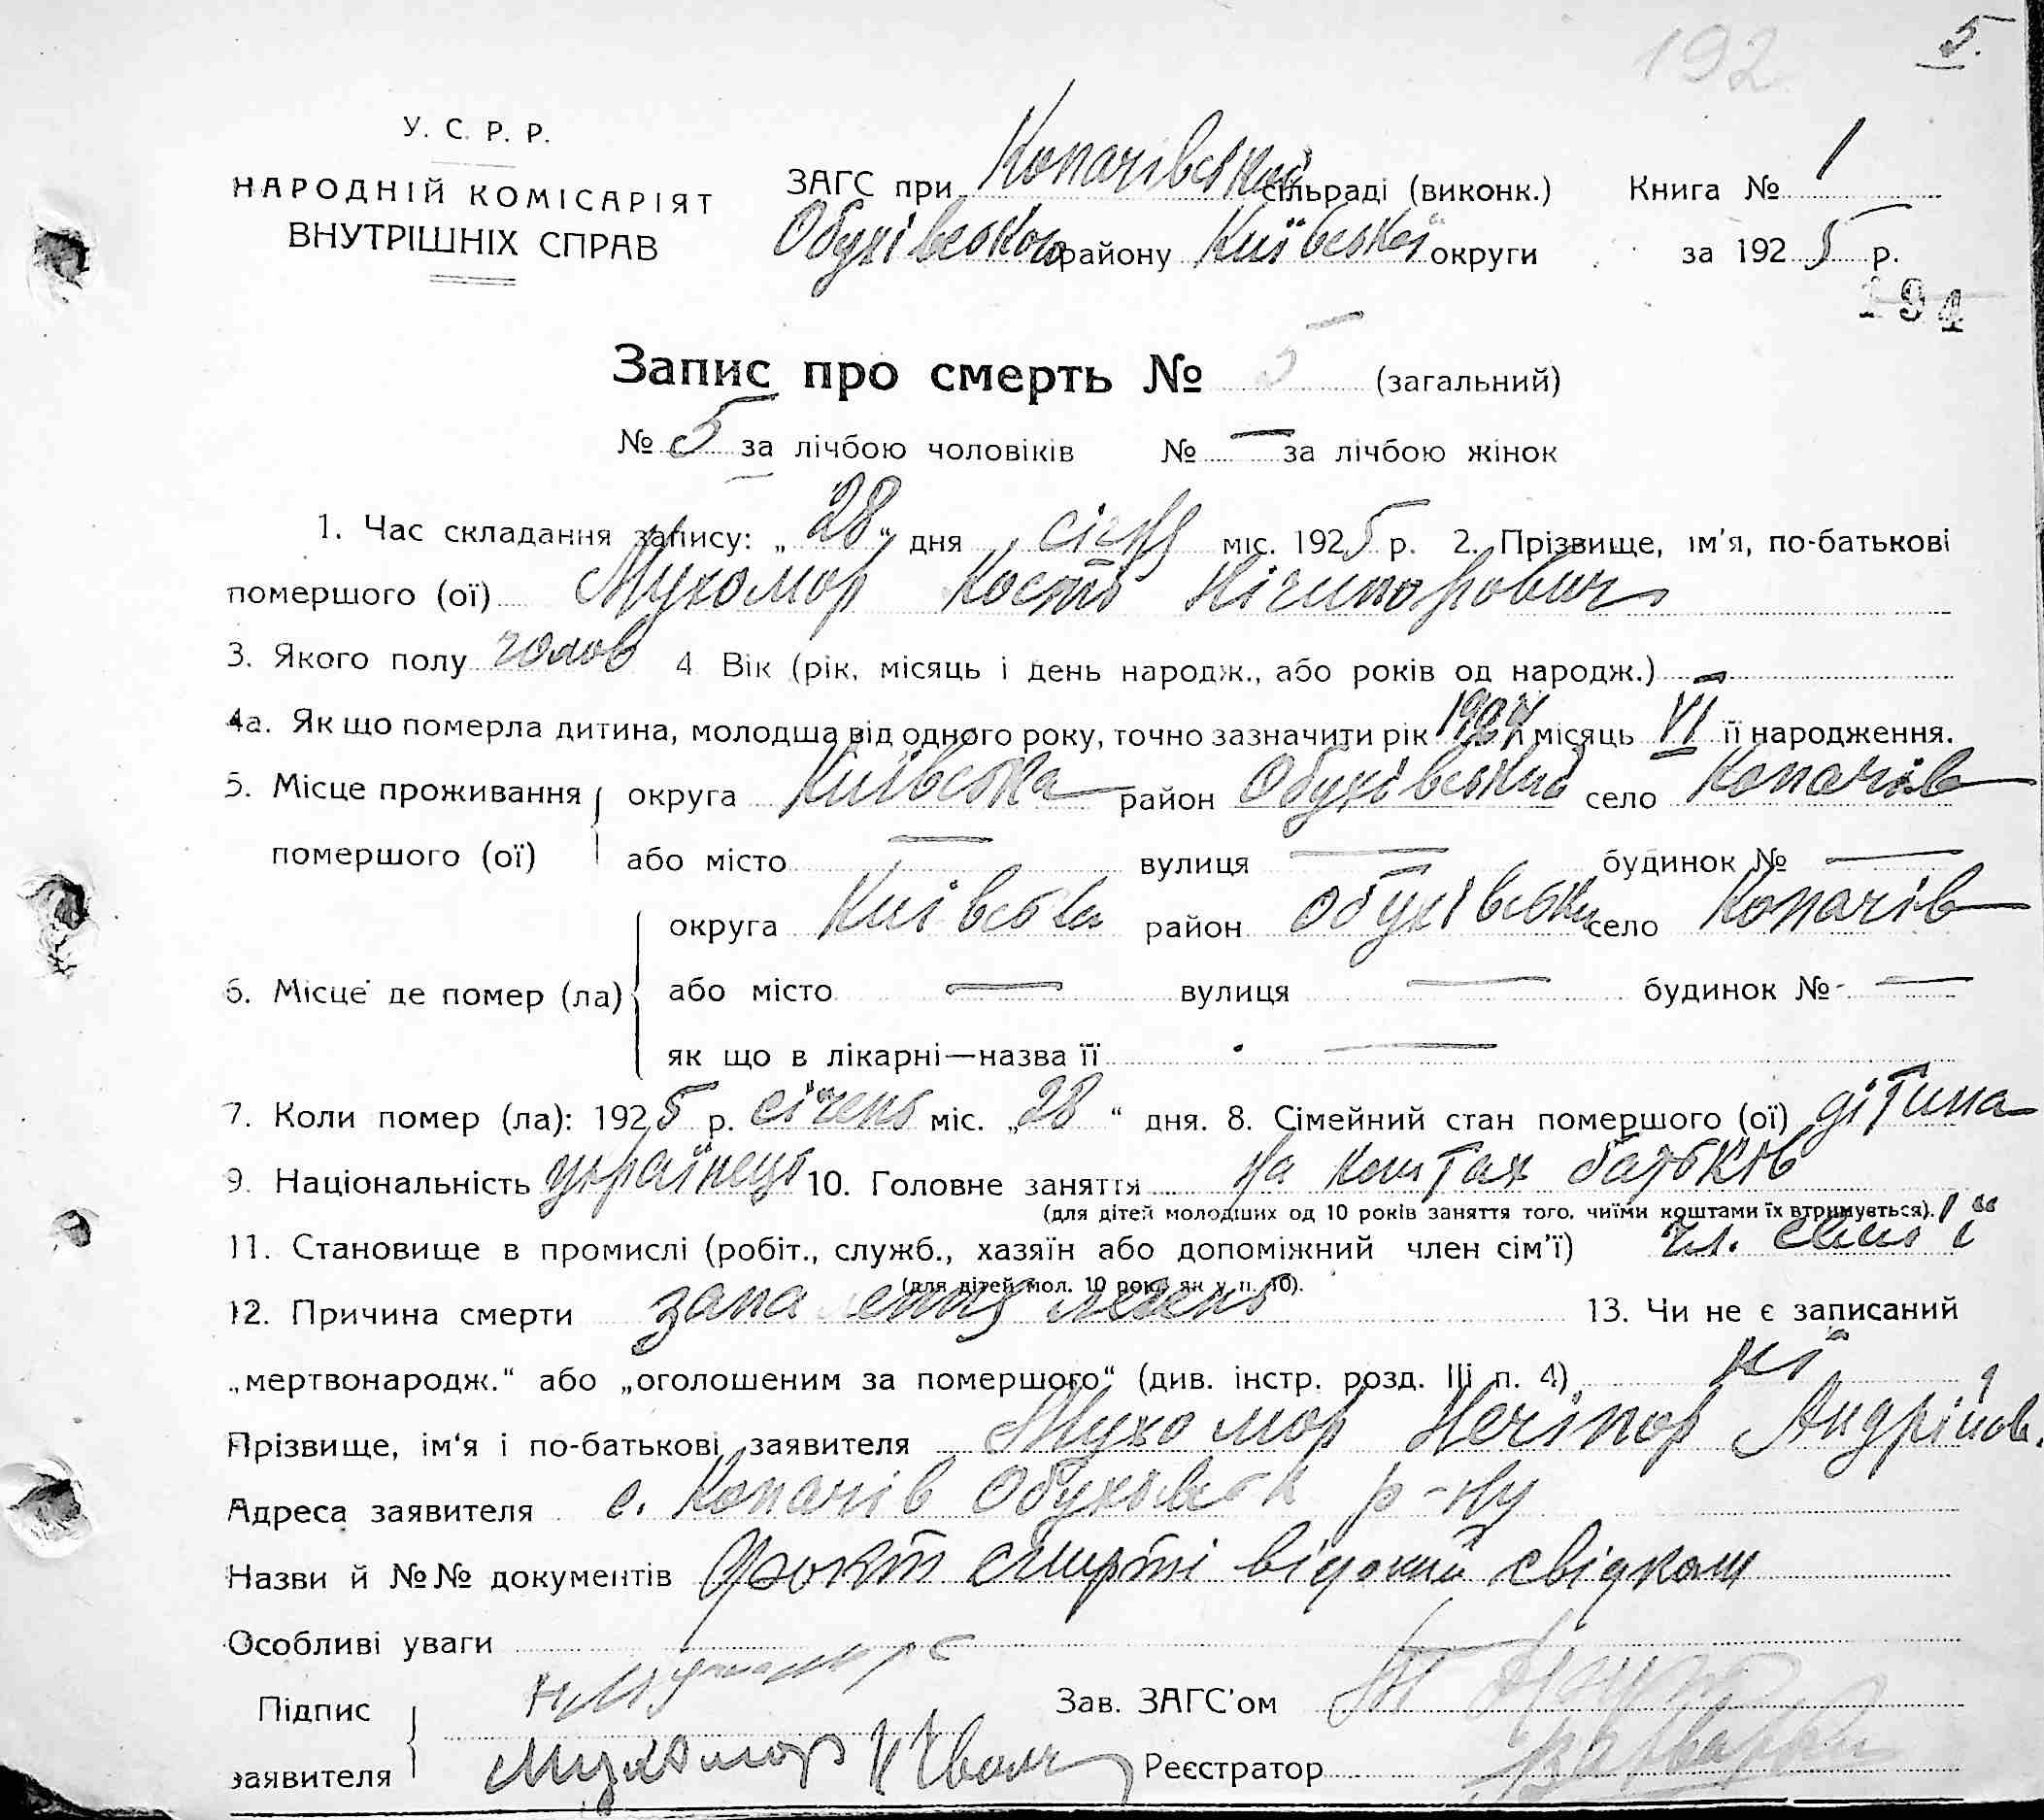 192 5.
У. С. Р. Р.
НАРОДНІЙ КОМІСАРІЯТ
ВНУТРІШНІХ СПРАВ
ЗАГС при Копачівській сільраді (виконк.) Книга № 1
Обухівського району Київської округи за 1925 р.
194
Запис про смерть № 5 (загальний)
№ 5 за лічбою чоловіків № — за лічбою жінок
1. Час складання запису: „28“ дня січня міс. 1925 р. 2. Прізвище, ім'я, по-батькові
помершого (ої) Мухомор Кость Нічипорович
3. Якого полу чолов 4 Вік (рік, місяць і день народж., або років од народж.) —
4а. Як що померла дитина, молодша від одного року, точно зазначити рік 1924 і місяць VI її народження.
5. Місце проживання округа Київська район Обухівський село Копачів
помершого (ої) або місто — вулиця — будинок № —
округа Київська район Обухівськи село Копачів
6. Місце де помер (ла) або місто — вулиця — будинок № —
як що в лікарні—назва її —
7. Коли помер (ла): 1925 р. січень міс. „28“ дня. 8. Сімейний стан помершого (ої) дітина
9. Національність українець 10. Головне заняття на коштах батьків
(для дітей молодших од 10 років заняття того, чиїми коштами їх втримується).
11. Становище в промислі (робіт., служб., хазяїн або допоміжний член сім'ї) чл. сем'ї
(для дітей мол. 10 рок. як у п. 10).
12. Причина смерти запалення легень 13. Чи не є записаний
„мертвонародж.“ або „оголошеним за помершого“ (див. інстр. розд. III п. 4) ні
Прізвище, ім'я і по-батькові заявителя Мухомор Нечіпор Андрійов.
Адреса заявителя с. Копачів Обухівськ р-ну
Назви й №№ документів Факт смерті відомий свідкам
Особливі уваги
Підпис Зав. ЗАГС'ом
заявителя Мухомор Реєстратор